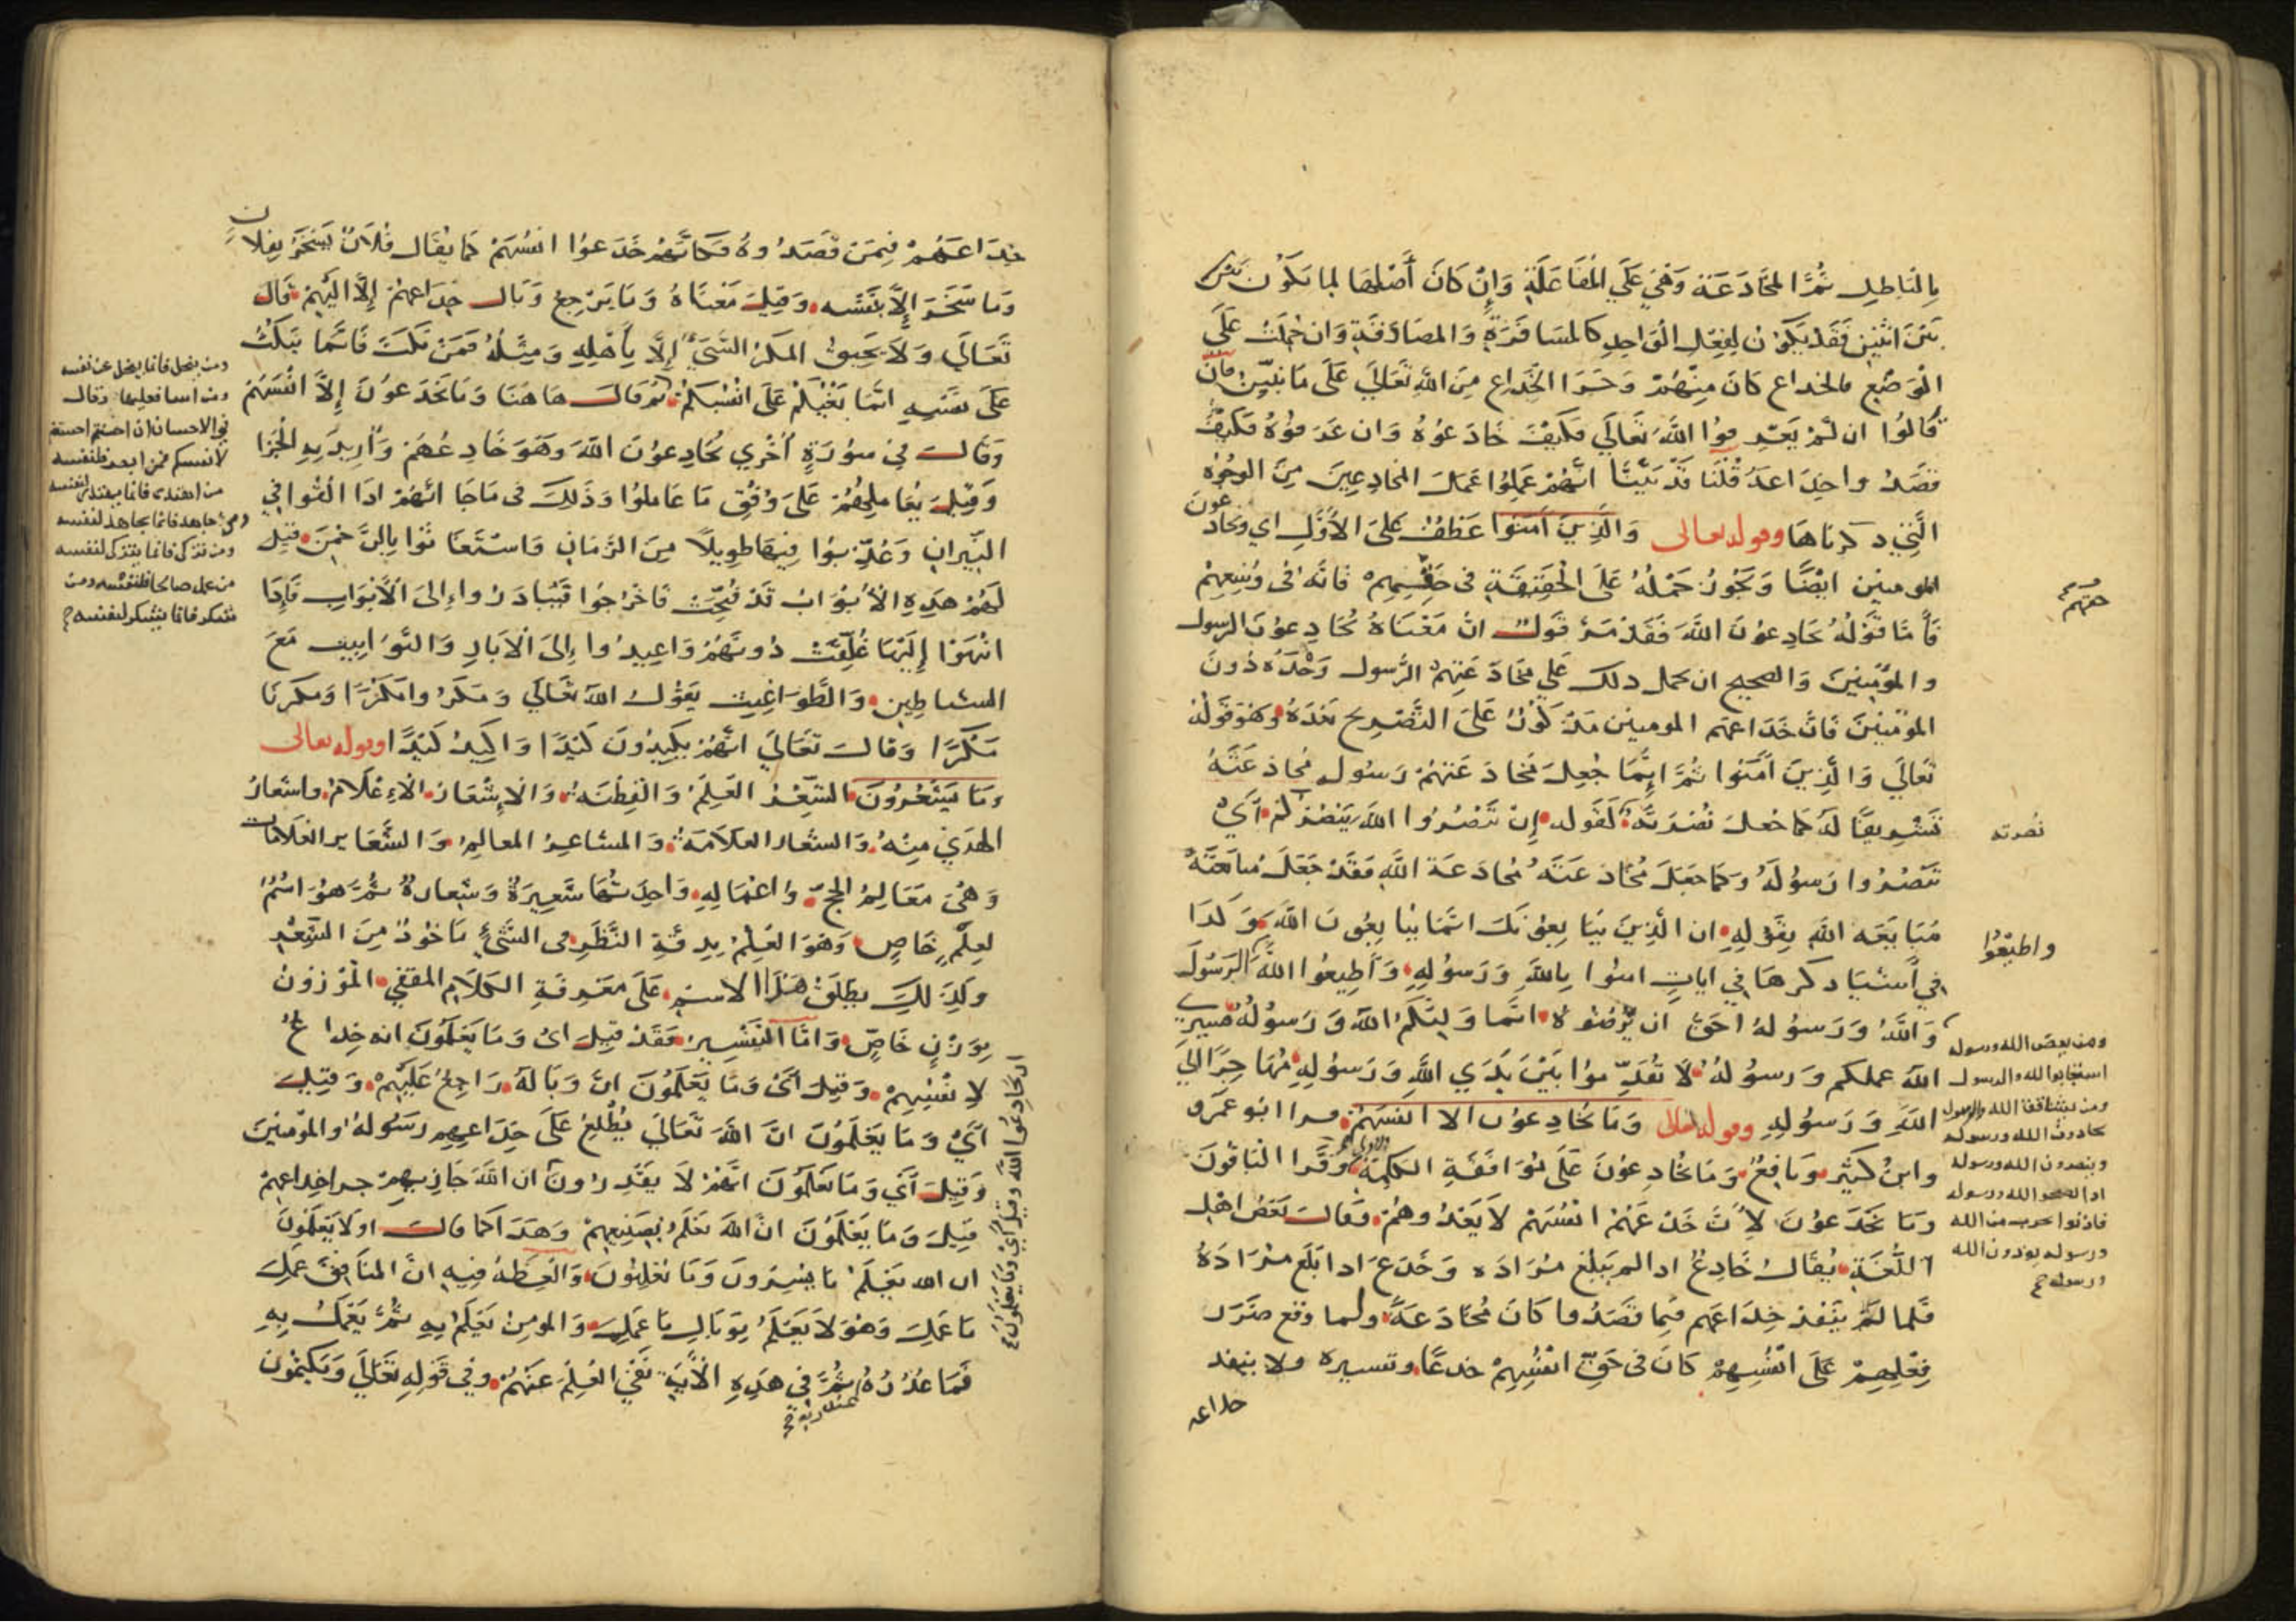 بِالْبَاطِلِ ثُمَّ المُخَادَعَة وَهْيَ عَلَي المُفَاعَلَةِ وَإِنْ كَانَ أَصْلُهَا لِمَا يَكُونُ بَيْنَ
بَيْنَ اثْنَيْنِ فَقَدْ يَكُوْنُ لِفِعْلِ الْوَاحِدِ كالمسَافَرَةِ وَالمصَادَفَةِ وَان حُمِلَتْ عَلَى
الْوَضْعِ فالخداع كَانَ مِنْهُمْ وَجَزَا الخِدَاعِ مِنَ اللهِ تَعَالَى عَلَى مَا نُبَيِّنُ فَانْ
قَالُوا ان لَمْ يَعْرِفُوا اللهَ تَعَالَي فَكَيْفَ خَادَعُوْهُ وَان عَرَفُوْهُ فَكَيْفَ
قصَدُوا خِدَاعَهُ قُلْنَا قَدْ بَيَّنَّا أَنَّهُمْ عَمِلُوا عَمَلَ المخادِعِينَ مِنَ الوجُوْهِ
الَّتِي ذكرنَاهَا وقوله تعالى وَالَّذِينَ آمَنُوا عَطْفٌ عَلَى الأَوَّلِ اي ويخادعون
المومنين ايْضًا وَيَجُوزُ حَمْلُهُ عَلَى الْحَقِيقَةِ فى حَقِّهِمْ فَانَّه فى وُسْعِهِمْ
فَأَمَّا قَوْلُهُ يُخَادِعُوْنَ اللهَ فَقَدْ مَرَّ قَولٌ انَّ مَعْنَاهُ يُخَادِعُوْنَ الرسول
والمؤْمِنِينَ وَالصحيح ان يحمل ذلك عَلي مخَادَعَتِهِمْ الرَّسول وَحْدَهُ دُونَ
المؤْمِنِينَ فَانَّ خِدَاعهم المومنين مَذْكُوْرٌ عَلَى التَّصْرِيح بَعْدَهُ وَهُوَ قَوْلُهُ
تَعَالَي وَالَّذِينَ آمَنُوا ثُمَّ إِنَّمَا جُعِلَ مُخَادَعَتهُمْ رَسُولَه مُخادَعَتَهُ
تَشْرِيفًا لَهُ كَمَا جعلَ نُصْرَتَهُ كَقَولِه إِنْ تَنْصُرُوا اللهَ يَنْصُرْكُمْ أَيْ
تَنْصُرُوا رَسُوْلَهُ وَكَمَا جَعَلَ مُخَادَعَتَهُ مُخَادَعَةَ اللهِ فَقَدْ جَعَلَ مُبَايَعَتَهُ
مُبَايَعَه اللهِ بِقَوْلِهِ ان الَّذِينَ يُبَايِعوْنَكَ انَّمَا يُبَايِعُونَ اللهَ وَكَذَا
فِي أَشْيَاء ذكرهَا فِي ايَاتٍ امنُوا بِاللهِ وَرَسُوْلِهِ وَأَطِيعُوا اللهَ وَالرَّسُوْلَ
وَاللهُ وَرَسُولُهُ احَقُّ ان يُرْضُوْهُ انَّمَا وَلِيُّكُمُ اللهُ وَرَسُوْلُهُ فسَيَرى
اللهُ عملكم وَرسوُلُهُ لَا تُقَدِّمُوا بَيْنَ يَدَيِ اللهِ وَرَسُولِهِ مُهَاجِرًا الي
اللهِ وَرَسُولِهِ وقوله تعالى وَمَا يُخَادِعُوْنَ الا انفسَهُمْ قرا ابُو عَمْرو
وابْنُ كَثِيْرٍ وَنَافِعٌ وَمَا يُخَادِعوْنَ عَلَى مُوَافَقَةِ الكَلِمَةِ الاولى وَقَرَا الْبَاقُونَ
وَمَا يَخْدَعوُنَ لِأَنَّ خَدْعَهُمْ انْفُسَهُمْ لَا يَعْدُوهُمْ وَقَالَ بَعْضُ اهْلِ
اللُّغَةِ يُقَالُ خَادَعَ اذا لم يَبْلُغ مُرَادَه وَخَدَعَ اذا بَلَغَ مُرَادَهُ
فَلَما لَمْ يَنْفُذ خِدَاعُهم فِيمَا قَصَدُوا كَانَ مُخَادَعَةً ولما وقع ضرَرُ
فِعْلِهِمْ عَلَى انْفُسِهِمْ كَانَ فى حَقِّ انْفُسِهِمْ خدعًا وتفسيره ولا ينفذ
خداعه
حقهم
نصرته
واطيعُوا
ومن يعص الله ورسوله
استجابوا لله والرسول
ومن يشاقق الله والرسول
يحادون الله ورسوله
وينصرون الله ورسوله
اذا نصحوا لله ورسوله
فاذنوا بحرب من الله
ورسوله يوذون الله
ورسوله
خِدَاعهُمْ فِيمَنْ قَصَدُوهُ فَكَانَّهُمْ خَدَعوُا انفُسَهُمْ كَمَا يُقَال فُلَانٌ يَسْخَرُ بفلان
وَمَا سَخَرَ إِلَّا بنَفْسِه وَقِيلَ مَعْنَاهُ وَمَا يَرْجِعُ وَبَال خِدَاعِهِمْ إِلَّا اليْهِمْ قَالَ
تَعَالَي وَلَا يَحِيقُ المكرُ السَّيِّئُ إِلَّا بِأَهْلِهِ وَمِثْلُهُ فَمَنْ نَكَثَ فَانَّمَا يَنْكُثُ
عَلَى نَفْسِهِ انَّمَا بَغْيُكُمْ عَلَى انْفُسِكُمْ ثُمَّ قَالَ هَاهُنَا وَمَا يَخْدَعوُنَ إِلَّا انْفُسَهُمْ
وَقَالَ فِي سُوْرَةٍ أُخْرَي يُخَادِعوُنَ اللهَ وَهُوَ خَادِعُهُمْ وَأُرِيدَ بِهِ الْجَزَا
وَقِيلَ يُعَامِلُهُمْ عَلَى وَفْقِ مَا عَاملوُا وَذَلِكَ فى مَا جَا انَّهُمْ اذَا القُوا فِي
النِّيرانِ وَعُذِّبُوا فِيهَا طوِيلًا مِنَ الزَّمَانِ فَاسْتَغَاثُوْا بِالرَّحْمَنِ قِيلَ
لَهُمْ هَذِهِ الْأَبْوَابُ قَدْ فُتِحَتْ فَاخْرُجُوا فَيَتَبَادَرُوا إِلىَ الْأَبْوَابِ فَإِذَا
انْتَهَوْا إِلَيْهَا غُلِقَتْ دُونَهُمْ وَاعِيدُوا إِلىَ الْآبَارِ وَالتَّوَابِيتِ مَعَ
الشياطِين وَالطَّوَاغِيتِ يَقُوْلُ اللهُ تعَالَي وَمَكَرُوا مَكْرًا وَمَكَرنَا
مَكْرًا وَقَالَ تَعَالَي انَّهُمْ يَكِيدُونَ كَيْدًا وَاكِيدُ كَيْدًا وقوله تعالى
وَمَا يَشْعُرُونَ الشِّعْرُ العِلْمُ وَالْفِطْنَةُ وَالْإِشْعَارُ الْاِعْلَامُ واشعَارُ
الهَدْي مِنْهُ وَالشِّعَارُ العَلَامَةُ وَالمشاعِرُ المعالِمُ وَالشَّعَائر العَلامَات
وَهْيَ مَعَالِمُ الحجّ وَاعْمَالِهِ وَاحِدَتُهَا شَعِيرَةٌ وَشِعَارةٌ ثُمَّ هُوَ اسْمٌ
لعِلْمٍ خَاصٍ وَهُوَ العِلْمُ بِدِقَّةِ النَّظَرِ فى الشَّيْءِ مَاخُوْذٌ مِنَ الشَّعْرِ
وكَذَلِكَ يطلَقُ هَذَا الاسمُ عَلَى مَعْرِفَةِ الكَلَامِ المقفي الْمَوْزوُنِ
بِوَزْنٍ خَاصٍّ وَامَّا التَّفْسِيرُ فَقَدْ قِيلَ ايْ وَمَا يَعْلَمُونَ انه خِدَاعٌ
لِانْفُسِهِمْ وَقِيلَ أَيْ وَمَا يَعْلَمُونَ انَّ وَبَالَهُ رَاجِعٌ عَلَيْهِمْ وَقِيلَ
أَيْ وَمَا يَعْلَمُوْنَ انَّ اللهَ تَعَالَي يُطْلِعُ عَلَى خِدَاعِهِم رَسُولَهُ والمؤمِنينَ
وَقِيلَ أَيْ وَمَا يَعْلَمُونَ انَّهُمْ لَا يَقْدِرُونَ ان اللهَ جَازيهِمْ جزا خِداعِهِمْ
قِيلَ وَمَا يَعْلَمُونَ انَّ اللهَ يَعْلَمُ بِصَنِيعِهِمْ وَهَذَا كَمَا قَالَ اوَلَا يَعْلَمُونَ
ان الله يَعْلَمُ مَا يُسِرُّونَ وَمَا يُعْلِنُونَ وَالْعِظَةُ فِيهِ انَّ المنَافِقَ عَمِلَ
مَا عَمِلَ وَهُوَ لَا يَعْلَمُ بِوَبَالِ مَا عَمِلَ وَالمومِنُ يَعْلَمُ بِهِ ثُمَّ يَعْمَلُ بِهِ
فَمَا عُذْرُهُ عند ربه ثُمَّ فِي هَذِهِ الْآيَةِ نَفْيُ العِلْمِ عَنْهُمْ وَفِي قَوْلِهِ تَعَالَي وَيَكْتُمُونَ
ومن يبخل فانما يبخل عن نفسه
ومن اسا فعليها وقال
في الاحسان ان احسنتم احسنتم
لانفسكم فمن ابصر فلنفسه
من اهتدى فانما يهتدي لنفسه
ومن جاهد فانما يجاهد لنفسه
ومن تزكى فانما يتزكى لنفسه
من عمل صالحا فلنفسه ومن
يشكر فانما يشكر لنفسه